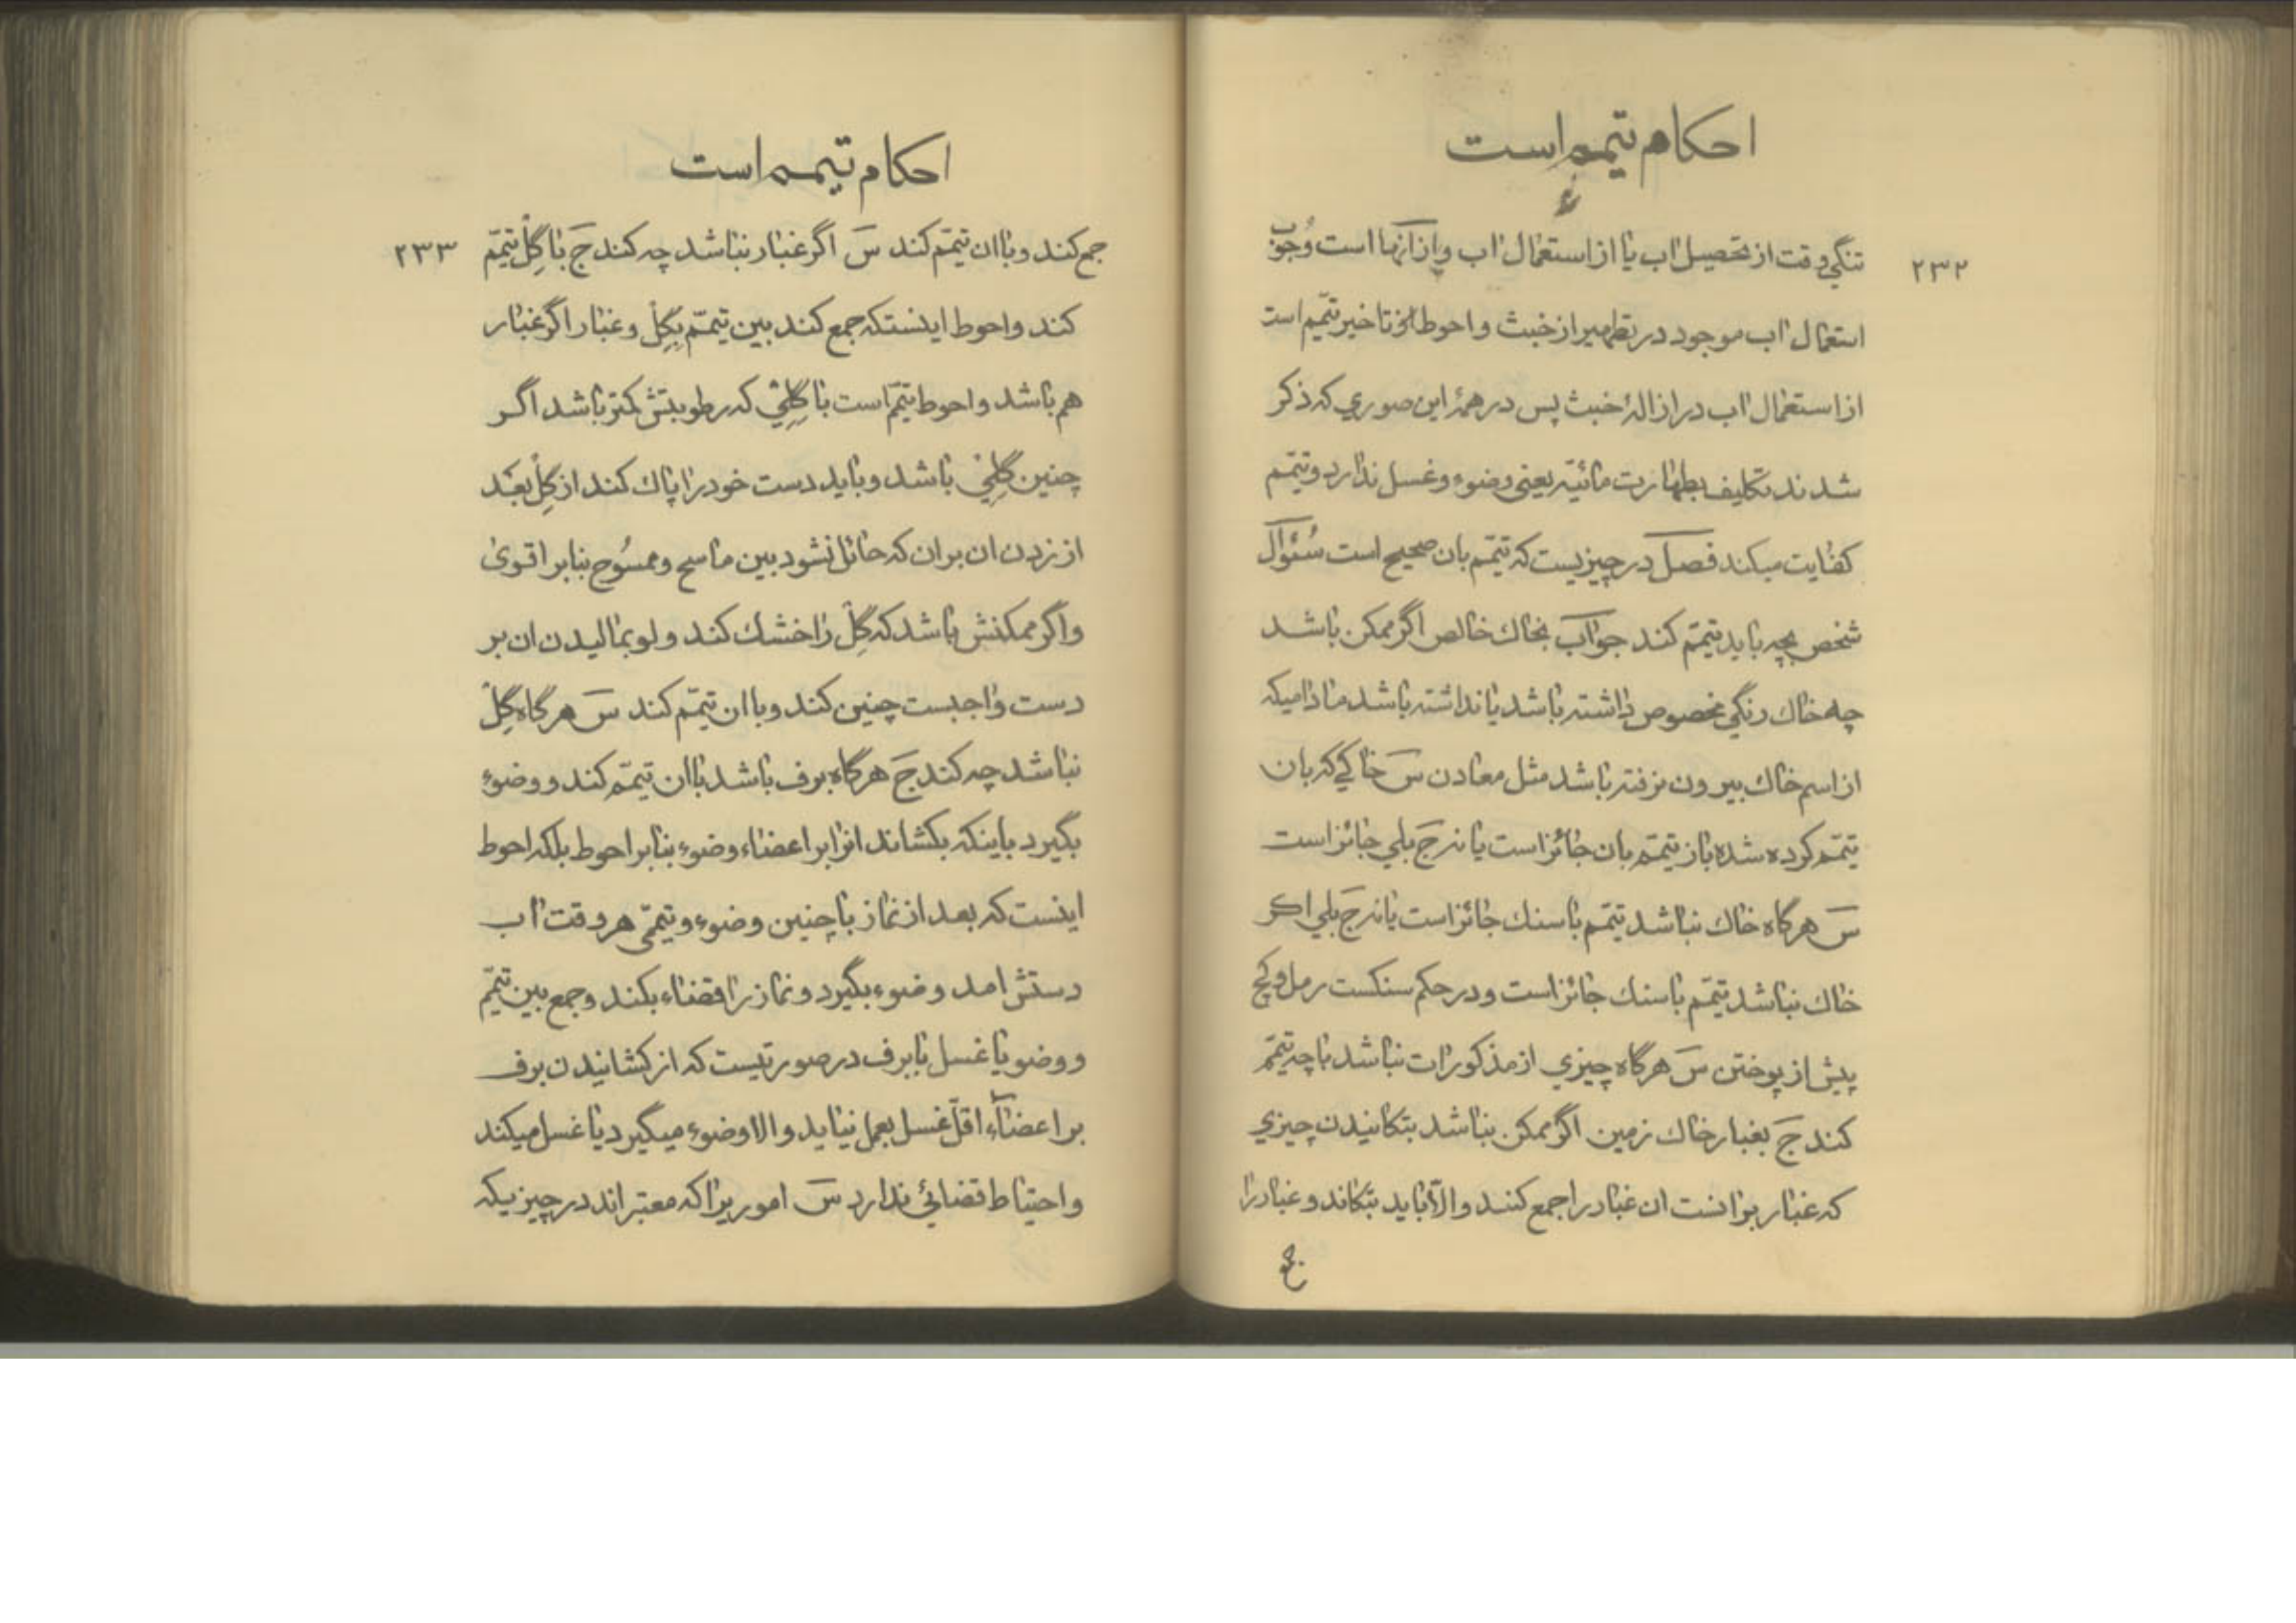 احکام تیمم است
۲۳۲
تنگی وقت از تحصیل اب یا از استعمال اب و از آنها است وُجوب
استعمال اب موجود در تطهیر از خبث و احوط تاخیر تیمّم است
از استعمال اب در ازالهٔ خبث پس در همهٔ این صوری که ذکر
شدند تکلیف بطهارت مائیّه یعنی وضوء و غسل ندارد و تیمّم
کفایت میکند فصل در چیزیست که تیمّم بان صحیح است سُئوال
شخص بچه باید تیمّم کند جواب بخاك خالص اگر ممکن باشد
چه خاك رنگی مخصوص داشته باشد یا نداشته باشد مادامیکه
از اسم خاك بیرون نرفته باشد مثل معادن سَ خاکی که بان
تیمّم کرده شده باز تیمّم بان جائز است یا نه جَ بلی جائز است
سَ هرگاه خاك نباشد تیمّم با سنك جائز است یا نه جَ بلی اکر
خاك نباشد تیمّم با سنك جائز است و در حکم سنکست رمل و کچ
پیش از پوختن سَ هرگاه چیزی از مذکورات نباشد با چه تیمّم
کند جَ بغبار خاك زمین اگر ممکن نباشد بتکانیدن چیزی
که غبار بر انست ان غبار را جمع کنند و الّا باید بتکاند و غبار را
جمع
احکام تیمم است
۲۳۳
جمع کند و با ان تیمّم کند سَ اگر غبار نباشد چه کند جَ با گِلْ تیمّم
کند و احوط اینستکه جمع کند بین تیمّم بگِلْ و غبار اگر غبار
هم باشد و احوط تیمّم است با گِلِیْ که رطوبتش کمتر باشد اگر
چنین گِلِیْ باشد و باید دست خود را پاك کند از گِلْ بعد
از زدن ان بر ان که حائل نشود بین ماسح و ممسُوح بنابر اقوی
و اگر ممکنش باشد که گِلْ را خشك کند و لو بمالیدن ان بر
دست واجبست چنین کند و با ان تیمّم کند سَ هرگاه گِلْ
نباشد چه کند جَ هرگاه برف باشد با ان تیمّم کند و وضوء
بگیرد باینکه بکشاند انرا بر اعضاء وضوء بنابر احوط بلکه احوط
اینست که بعد از نماز با چنین وضوء و تیمّمی هر وقت اب
دستش امد وضوء بگیرد و نماز را قضاء بکند و جمع بین تیمّم
و وضو یا غسل با برف در صورتیست که از کشانیدن برف
بر اعضاء اقلّ غسل بعمل نیاید و الا وضوء میگیرد یا غسل میکند
و احتیاط قضائی ندارد سَ اموریرا که معتبر اند در چیزیکه